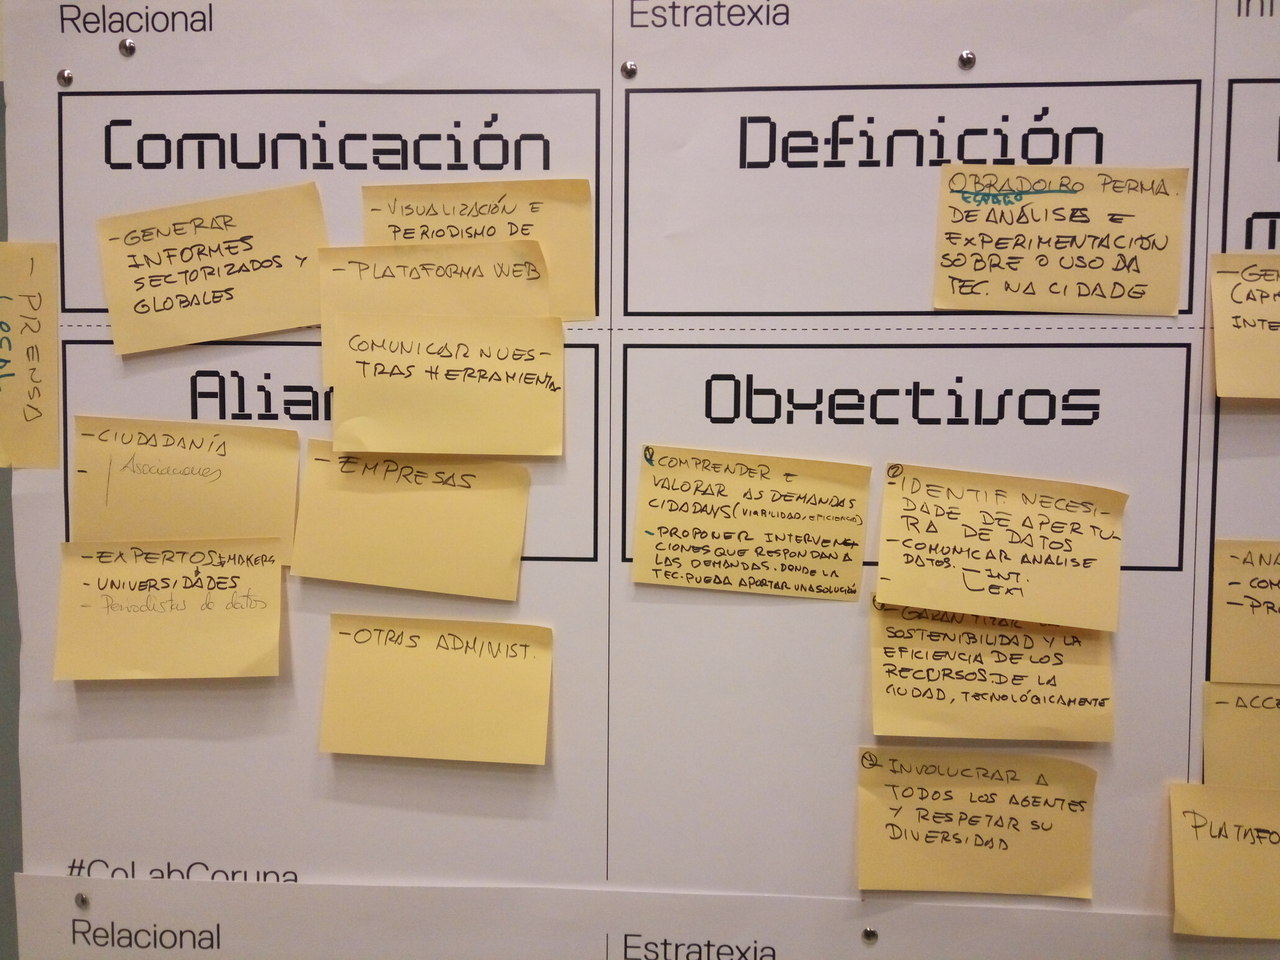 Relacional
Comunicación
- GENERAR
INFORMES
SECTORIZADOS Y
GLOBALES
- VISUALIZACIÓN E
PERIODISMO DE
- PLATAFORMA WEB
COMUNICAR NUES-
TRAS HERRAMIENTAS
- PRENSA
LOCAL
Alian
- CIUDADANÍA
- Asociaciones
- EMPRESAS
- EXPERTOS MAKERS
- UNIVERSIDADES
- Periodistas de datos
- OTRAS ADMINIST.
#CoLabCoruna
Estratexia
Definición
OBRADOIRO PERMA.
ESPAZO
DE ANÁLISE E
EXPERIMENTACIÓN
SOBRE O USO DA
TEC. NA CIDADE
Obxectivos
COMPRENDER E
VALORAR AS DEMANDAS
CIDADANS (VIABILIDAD, EFICIENCIA)
- PROPONER INTERVEN-
CIONES QUE RESPONDAN A
LAS DEMANDAS. DONDE LA
TEC. PUEDA APORTAR UNA SOLUCIÓN
②
- IDENTIF. NECESI-
DADE DE APERTU-
RA DE DATOS
- COMUNICAR ANÁLISE
DATOS. INT.
- EXT
- GARANTIZAR LA
SOSTENIBILIDAD Y LA
EFICIENCIA DE LOS
RECURSOS DE LA
CIUDAD, TECNOLÓGICAMENTE
- INVOLUCRAR A
TODOS LOS AGENTES
Y RESPETAR SU
DIVERSIDAD
- GEN
(CAPA
INTE
- ANA
- COM
- PRO
- ACCE
PLATAFO
Relacional
Estratexia